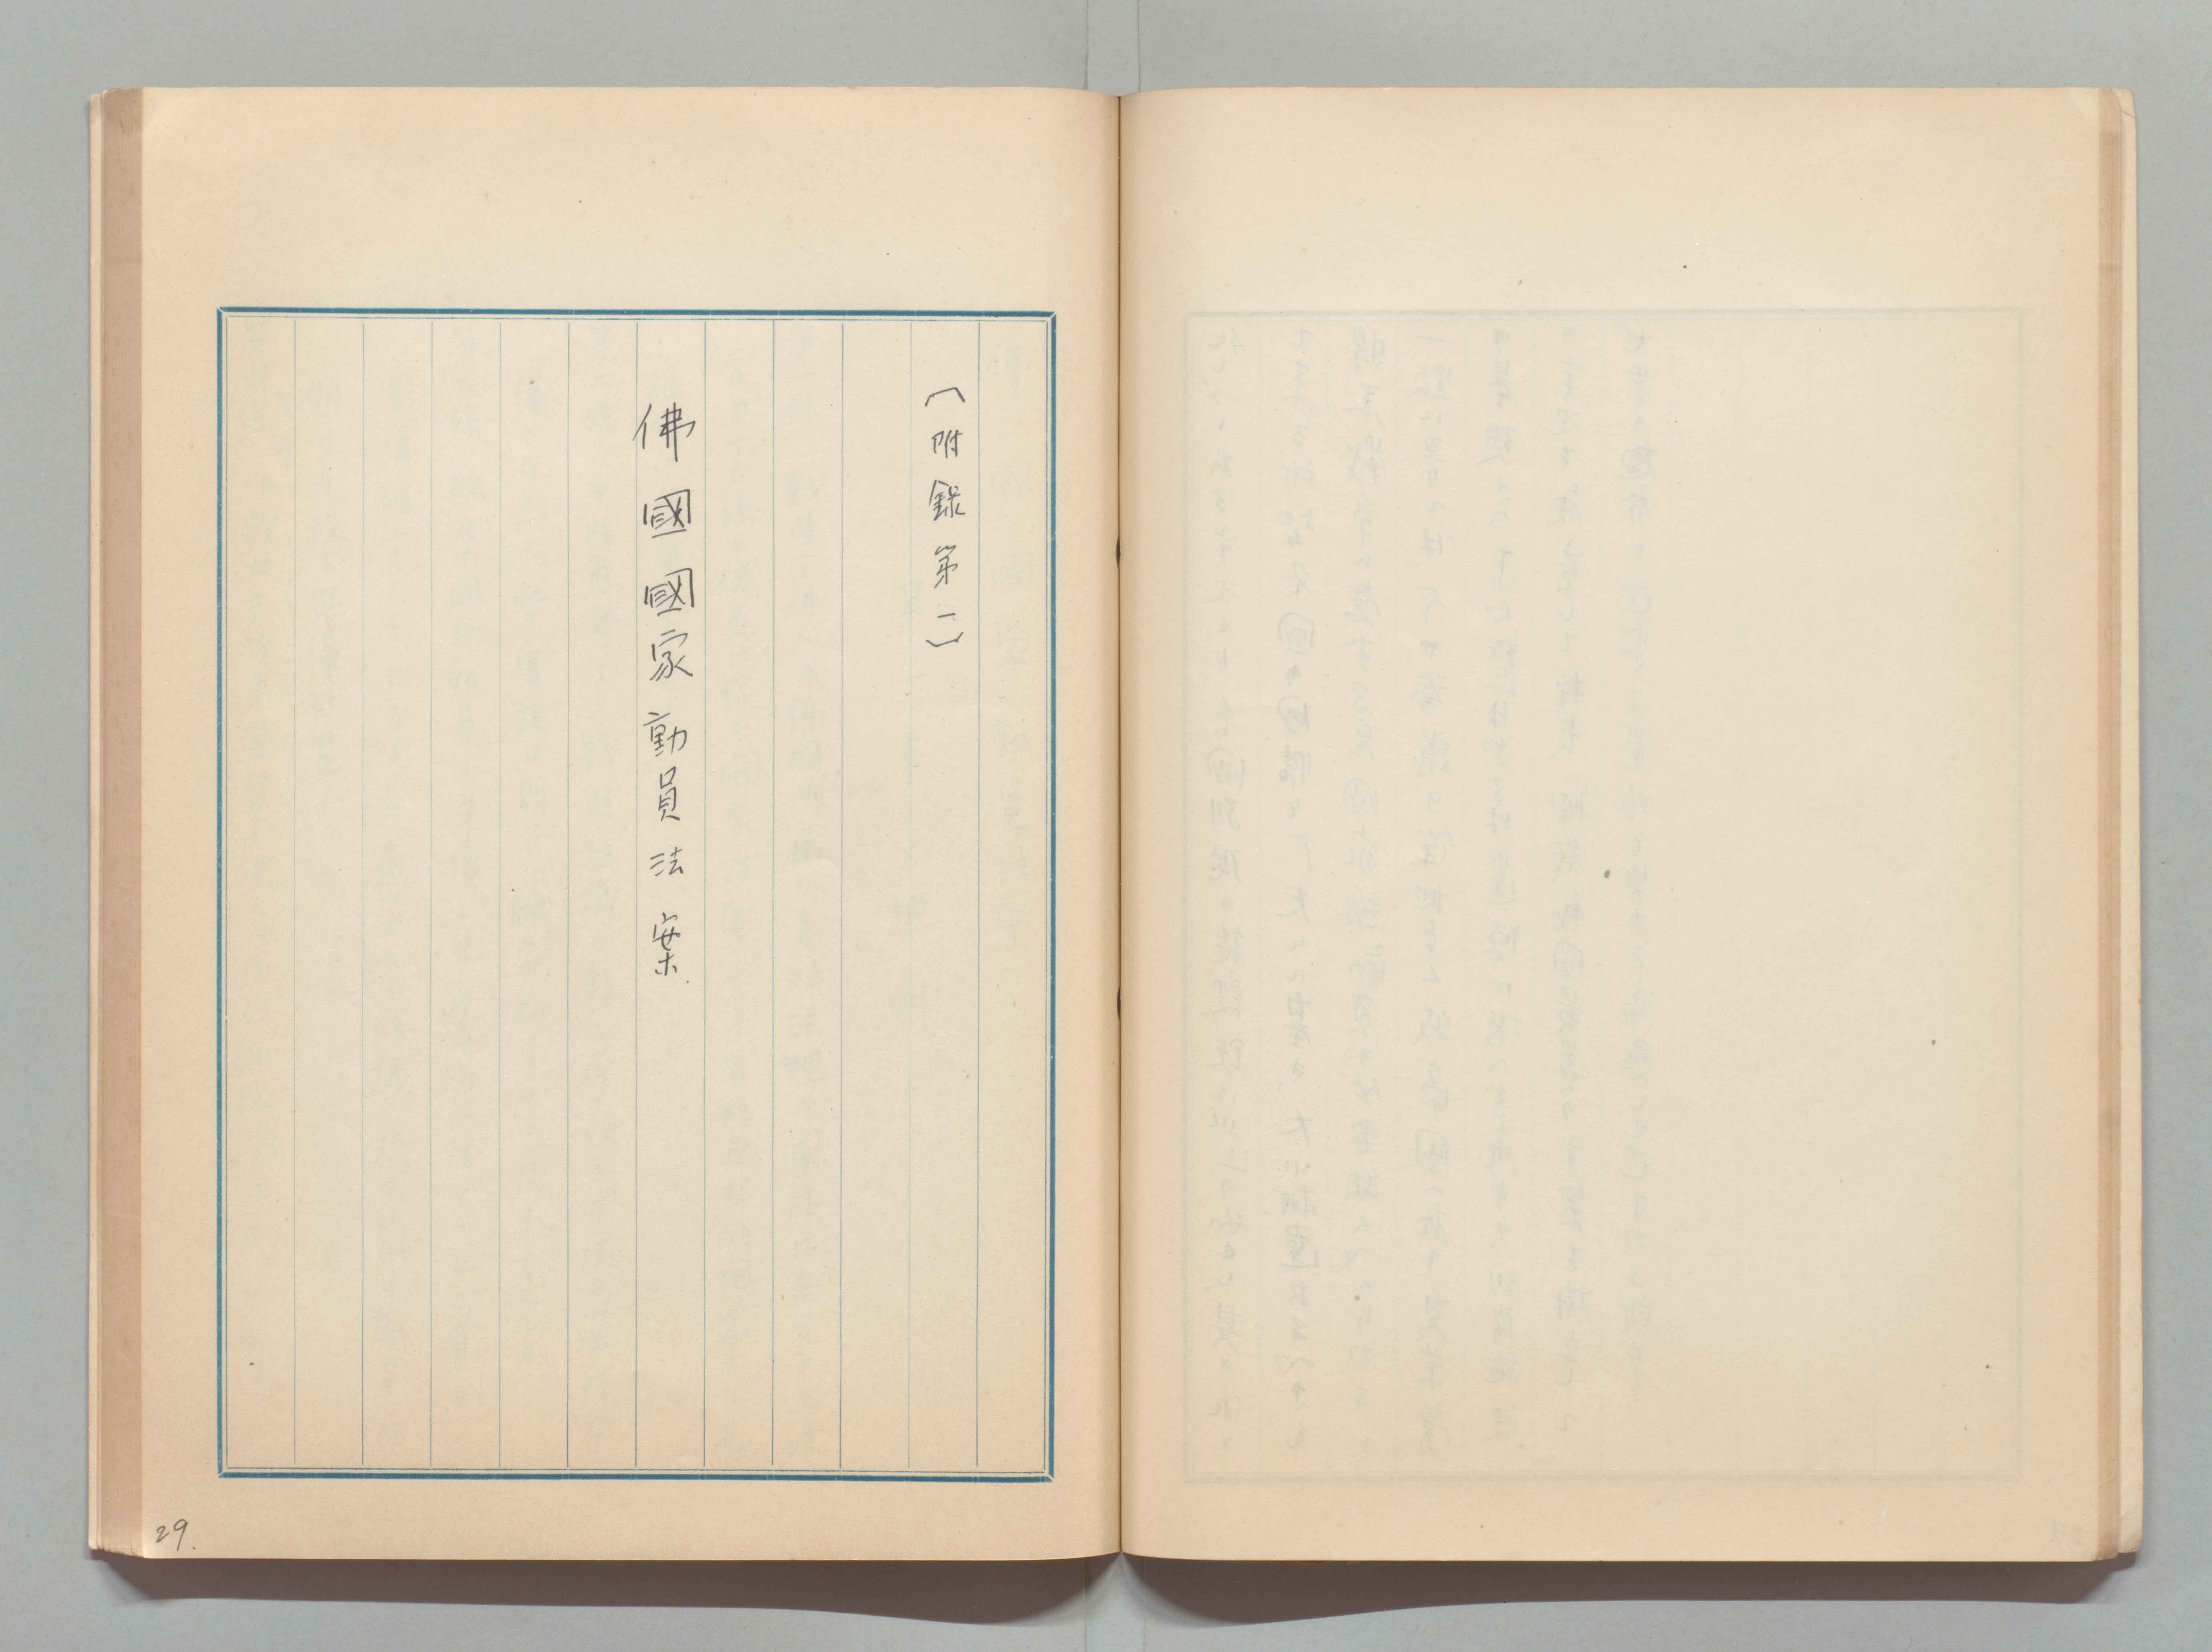 （附錄第二）
佛國國家動員法案
29.